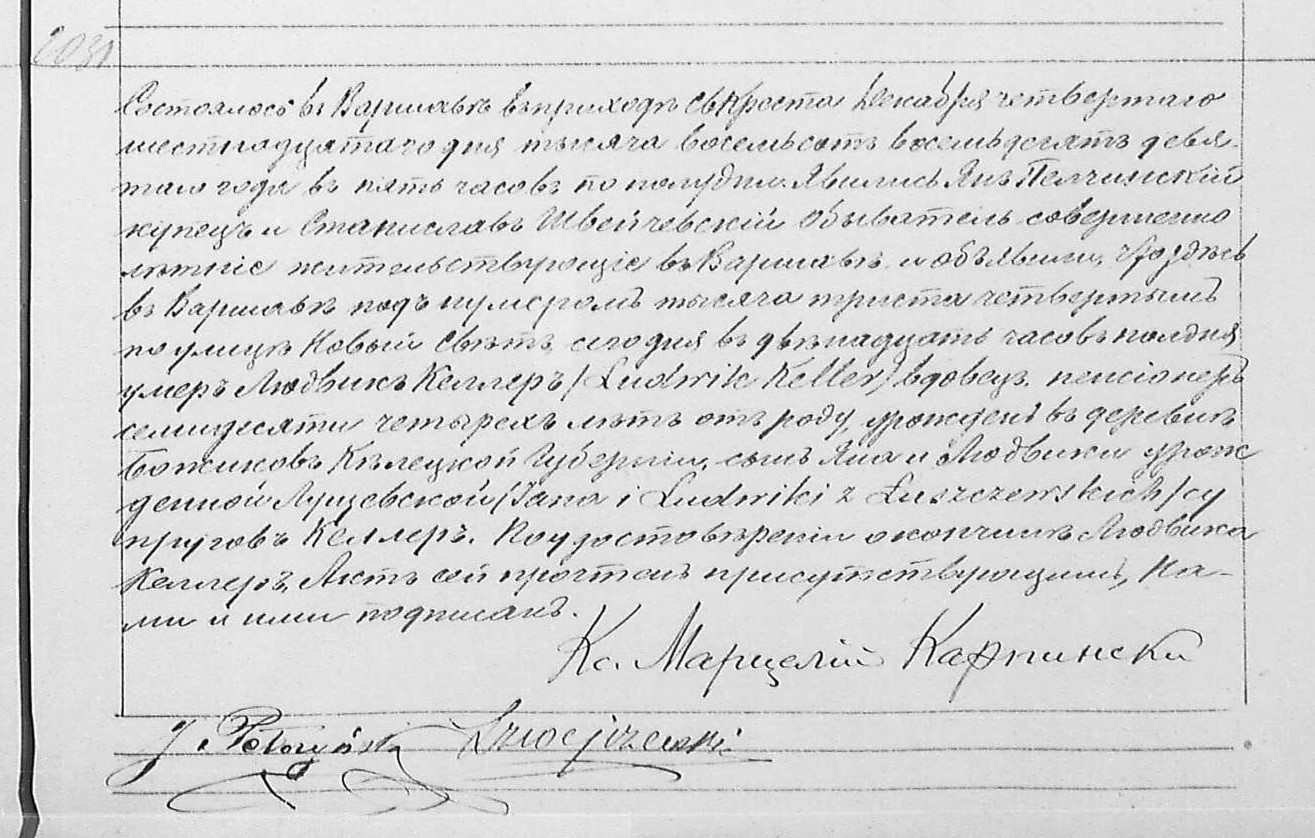 Состоялось въ Варшавѣ въ приходѣ Св Креста Декабря четвертаго
шестнадцатаго дня тысяча восемьсотъ восемьдесятъ девя-
таго года въ пять часовъ по полудни. Явились Янъ Пелчинскій
купецъ и Станиславъ Швейчевскій обыватель совершенно
лѣтніе жительствующіе въ Варшавѣ и объявили, что здѣсь
въ Варшавѣ подъ нумеромъ тысяча триста четвертымъ
по улицѣ Новый Свѣтъ, сегодня въ двѣнадцать часовъ полдня
умеръ Людвикъ Келлеръ /Ludwik Keller/ вдовецъ, пенсіонеръ
семидесяти четырехъ лѣтъ отъ роду, урожденъ въ деревнѣ
Божиковъ Кѣлецкой Губерніи, сынъ Яна и Людвики урож
денной Лущевской /Jana i Ludwiki z Łuszczewskich/ су
пруговъ Келлеръ. По удостовѣреніи о кончинѣ Людвика
Келлеръ, Актъ сей прочтенъ присутствующимъ, На-
ми и ими подписанъ.
Кс. Марцелій Карпински
J.
Szwejczewski